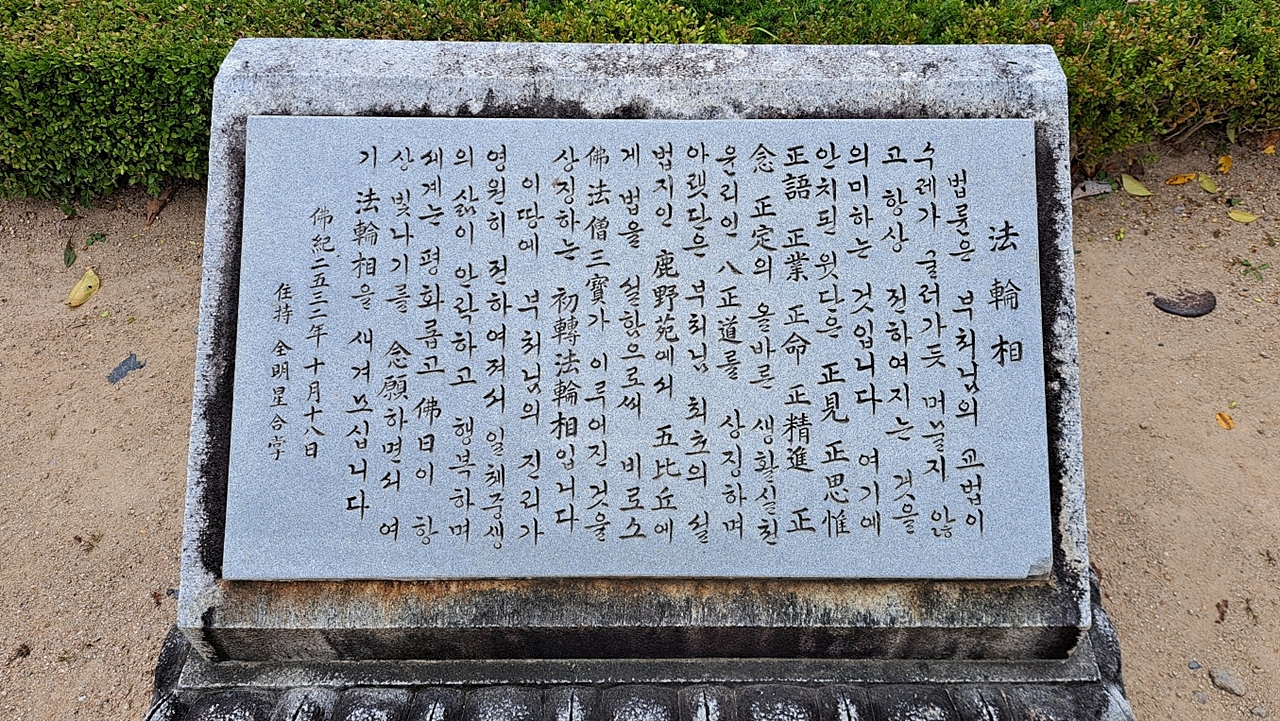 法輪相
법륜은 부처님의 교법이
수레가 굴러가듯 머물지 않
고 항상 전하여지는 것을
의미하는 것입니다 여기에
안치된 윗단은 正見 正思惟
正語 正業 正命 正精進 正
念 正定의 올바른 생활실천
윤리인 八正道를 상징하며
아랫단은 부처님 최초의 설
법지인 鹿野苑에서 五比丘에
게 법을 설함으로써 비로소
佛法僧三寶가 이루어진 것을
상징하는 初轉法輪相입니다
이 땅에 부처님의 진리가
영원히 전하여져서 일체중생
의 삶이 안락하고 행복하며
세계는 평화롭고 佛日이 항
상 빛나기를 念願하면서 여
기 法輪相을 새겨 모십니다
佛紀二五三三年 十月十八日
住持 全明星 合掌